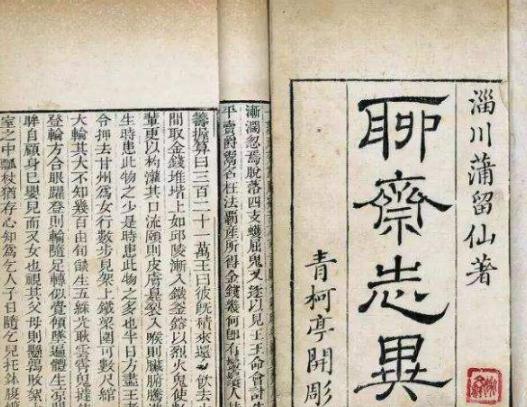 淄川蒲留仙著
聊齋志異
青柯亭開彫
漸濶忽焉脫落四支蠖屈鬼又逐以見王王命會計生
平賣爵鬻名枉法霸產所得金錢幾何即有鬚人
籌握算曰三百二十一萬王曰彼旣積來還飲去
間取金錢堆堦上如邱陵漸入鐵釜鎔以烈火鬼使
輩更以杓灌其口流頤則皮膚臭裂入喉則臟腑騰
生時患此物之少是時患此物之多也半日方盡王者
令押去甘州爲女行數步見架上鐵梁圍可數尺綰
大輪其大不知幾百由旬燄生五綵光耿雲霄鬼撻
登輪方合眼躍登則輪隨足轉似覺傾墜遍體生凉
眸自顧身已嬰兒而又女也視其父母則懸鶉敗絮
室之中瓢杖猶存心知爲乞人子日隨乞兒托鉢腹